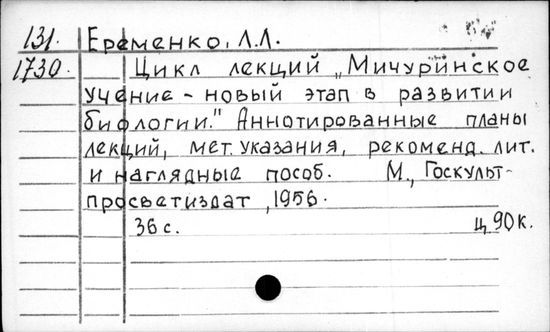 131. Еременко, Л.Л.
1730. Цикл лекций „Мичуринское
учение - новый этап в развитии
биологии." Аннотированные планы
лекций, мет. указания, рекоменд. лит.
и наглядные пособ. М., Госкульт-
просветиздат, 1956.
36 с. ц. 90 к.